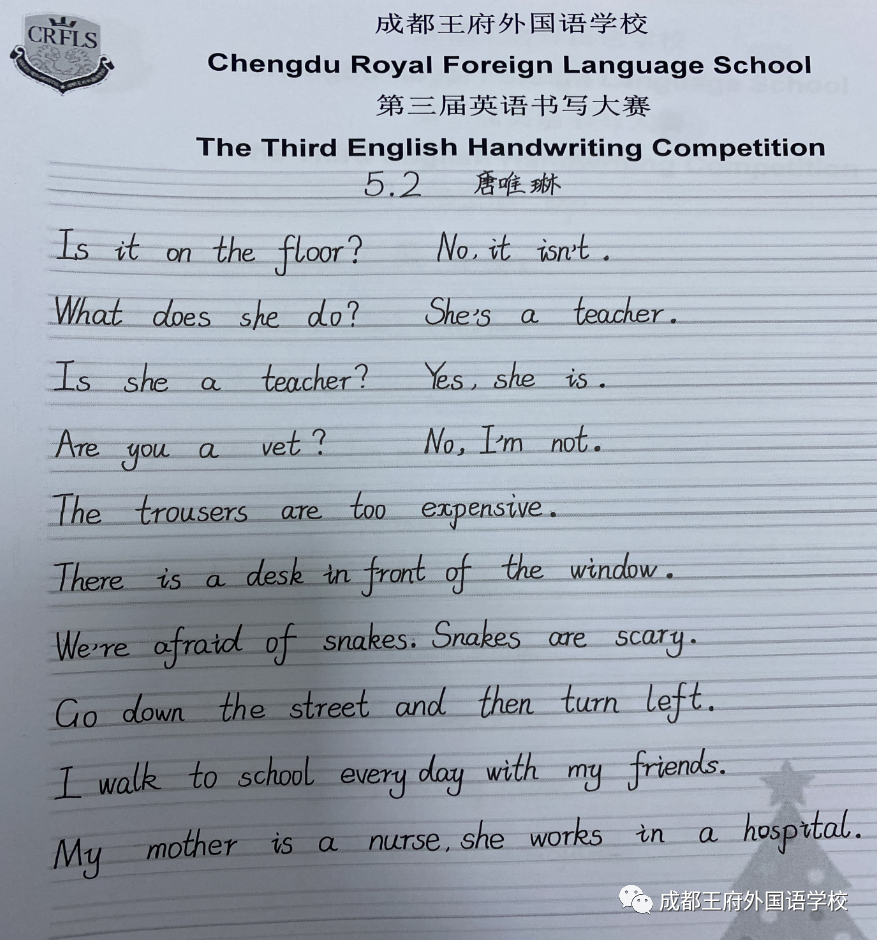 CRFLS
成都王府外国语学校
Chengdu Royal Foreign Language School
第三届英语书写大赛
The Third English Handwriting Competition
5.2 唐唯琳
Is it on the floor? No, it isn't.
What does she do? She's a teacher.
Is she a teacher? Yes, she is.
Are you a vet? No, I'm not.
The trousers are too expensive.
There is a desk in front of the window.
We're afraid of snakes. Snakes are scary.
Go down the street and then turn left.
I walk to school every day with my friends.
My mother is a nurse, she works in a hospital.
成都王府外国语学校